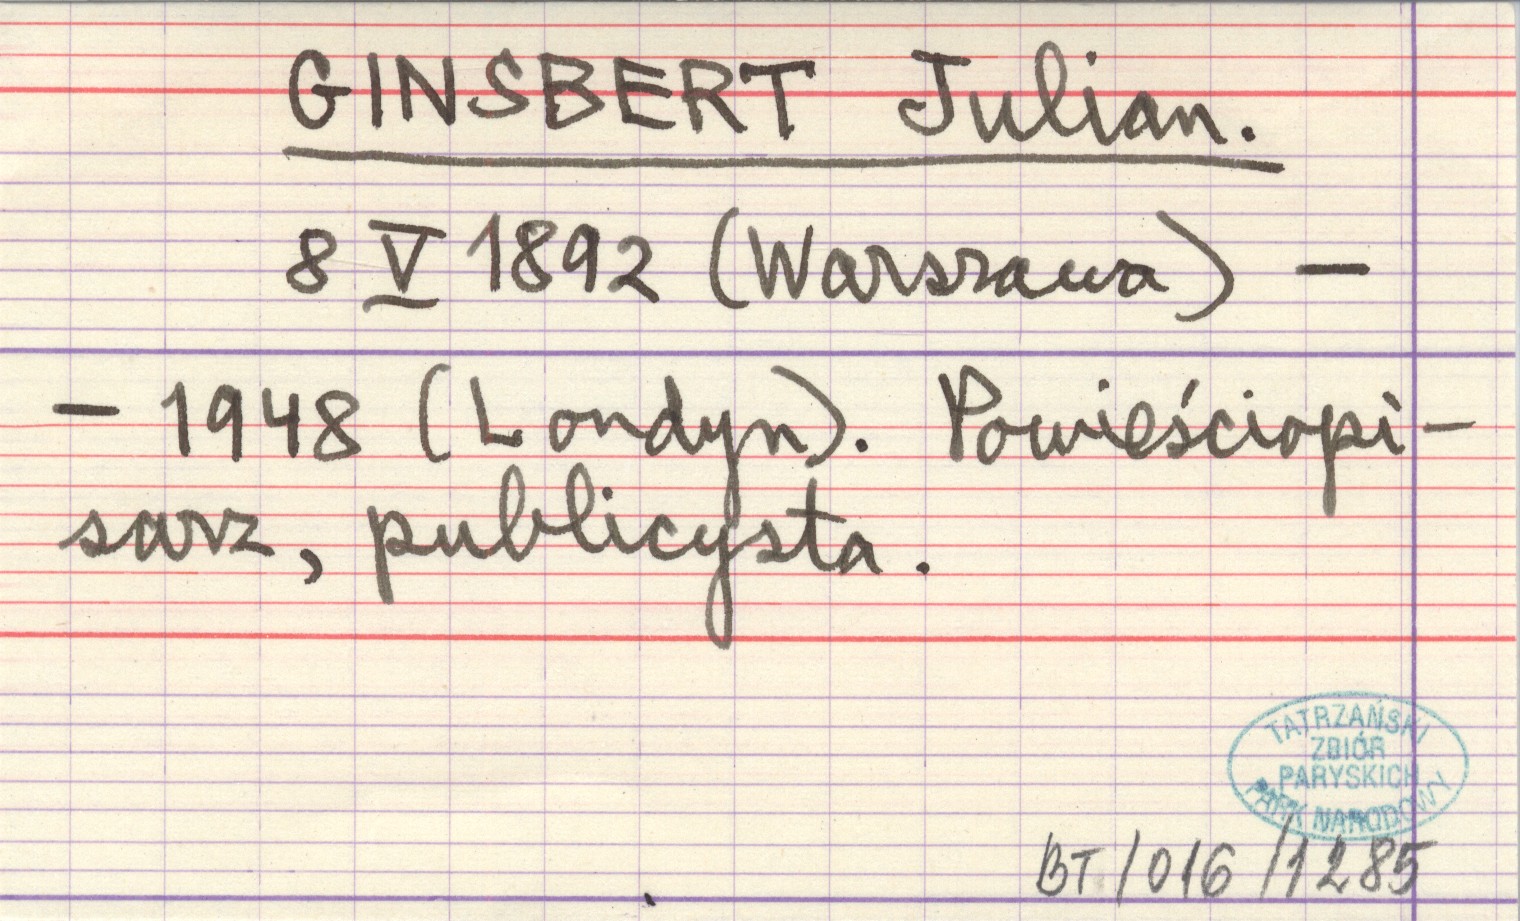 GINSBERT Julian.
8 V 1892 (Warszawa) —
— 1948 (Londyn). Powieściopi-
sarz, publicysta.
TATRZAŃSKI
ZBIÓR
PARYSKICH
PARK NARODOWY
BT/016/1285